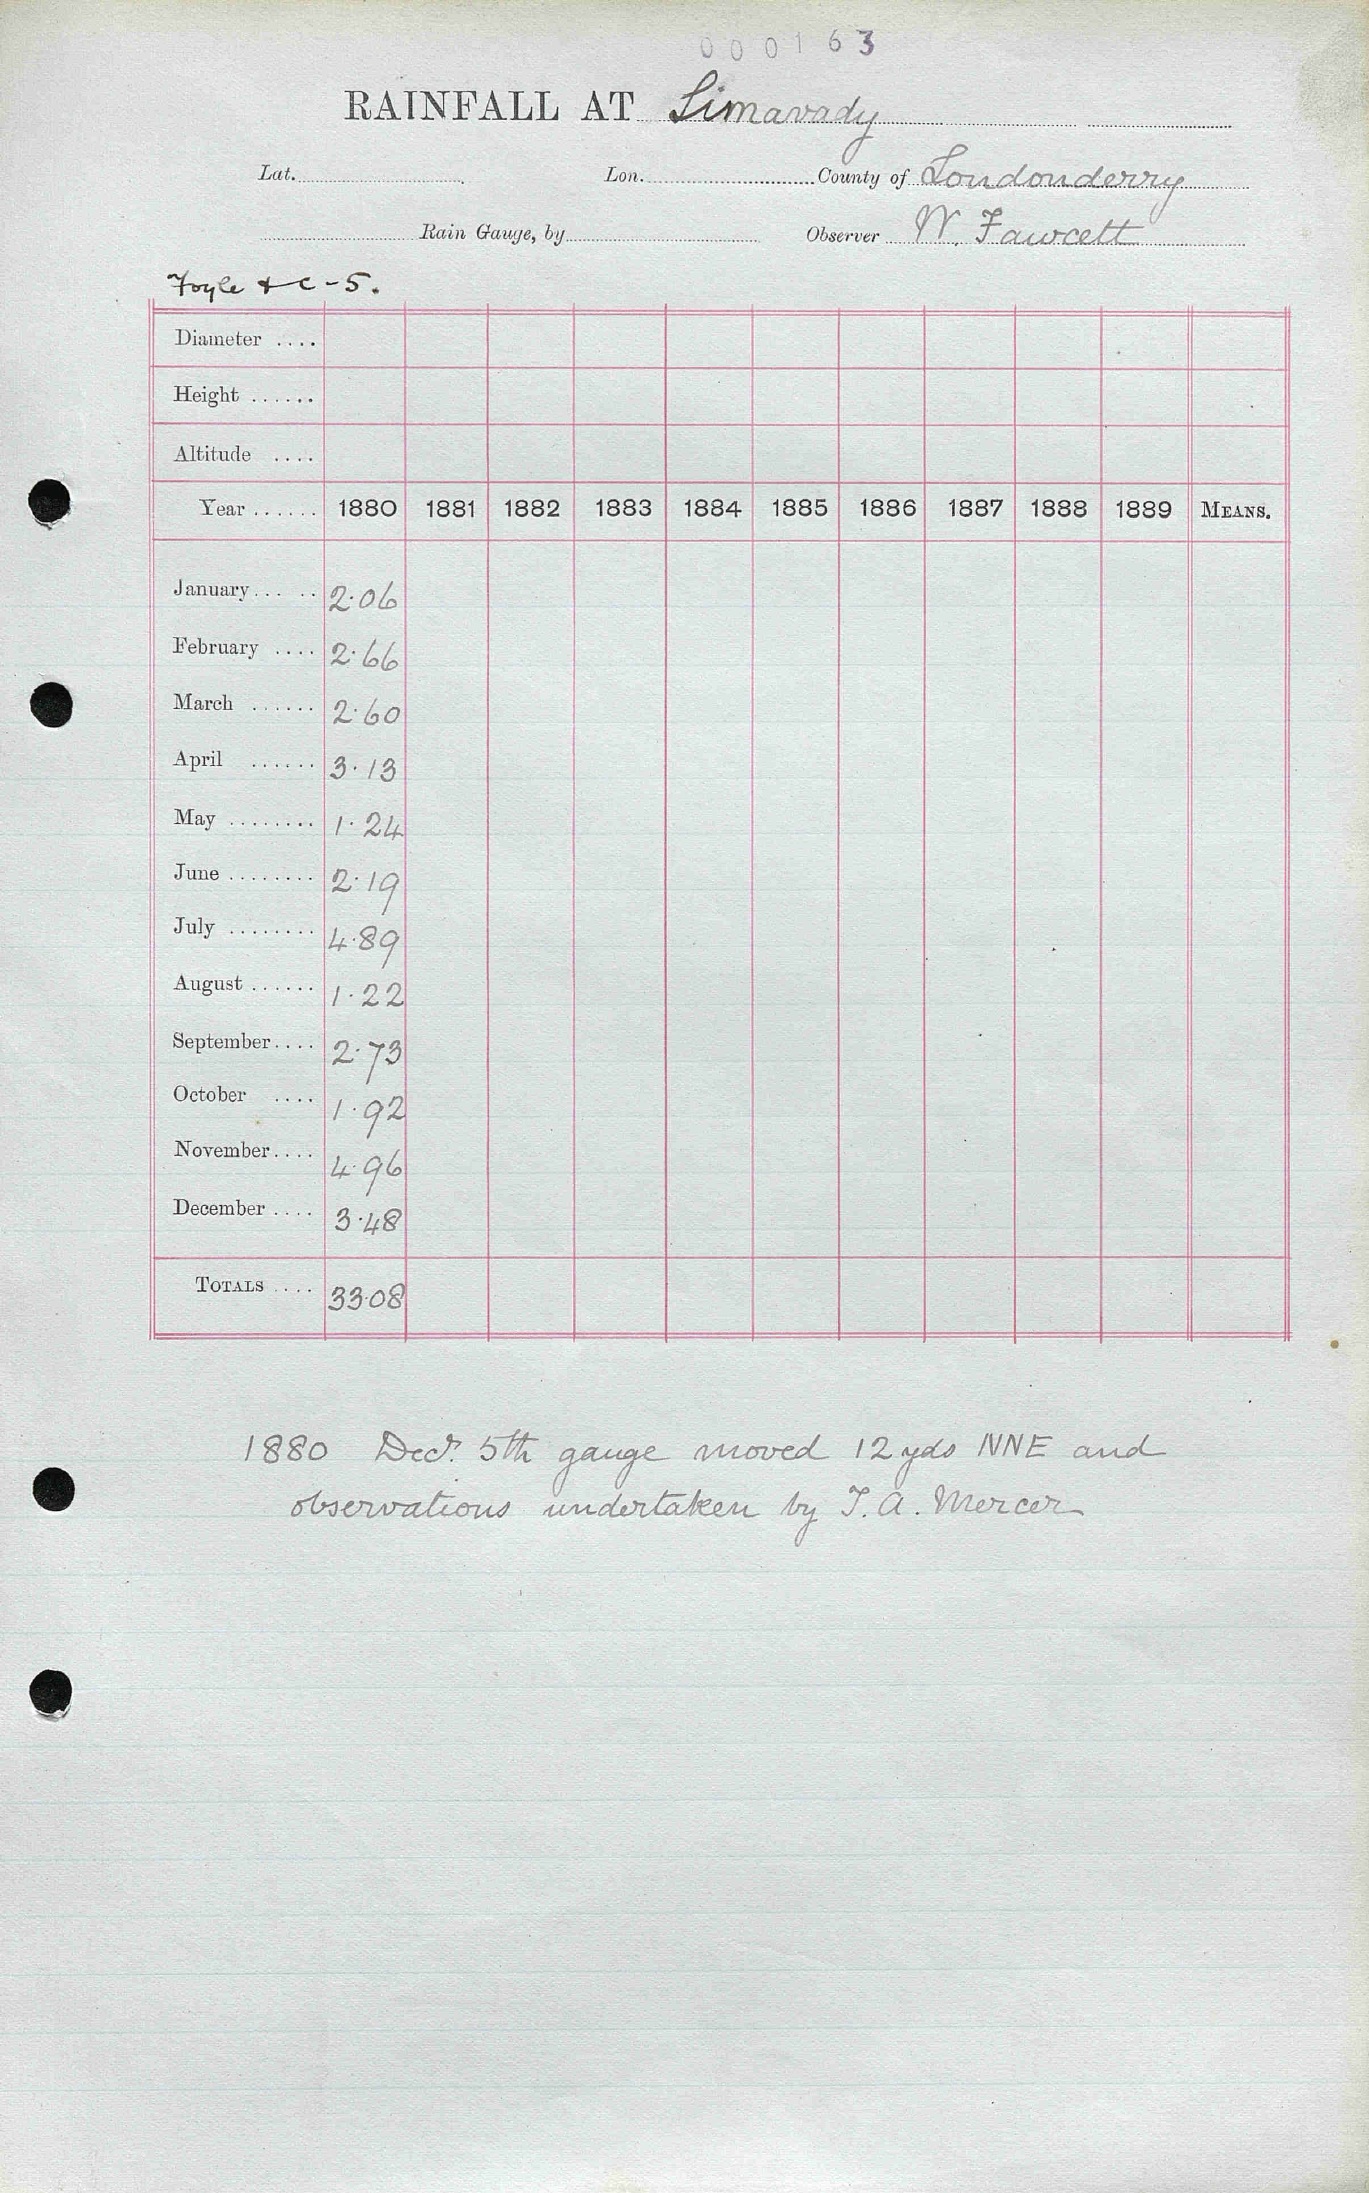 000163
RAINFALL AT Limavady
Lat. Lon. County of Londonderry
Rain Gauge, by Observer W. Fawcett
Foyle & C-5.
Diameter ....
Height ......
Altitude ....
Year ...... 1880 1881 1882 1883 1884 1885 1886 1887 1888 1889 MEANS.
January ..... 2.06
February .... 2.66
March ...... 2.60
April ...... 3.13
May ........ 1.24
June ........ 2.19
July ........ 4.89
August ...... 1.22
September .... 2.73
October .... 1.92
November .... 4.96
December .... 3.48
TOTALS .... 33.08
1880 Decr. 5th gauge moved 12 yds NNE and
observations undertaken by T. A. Mercer